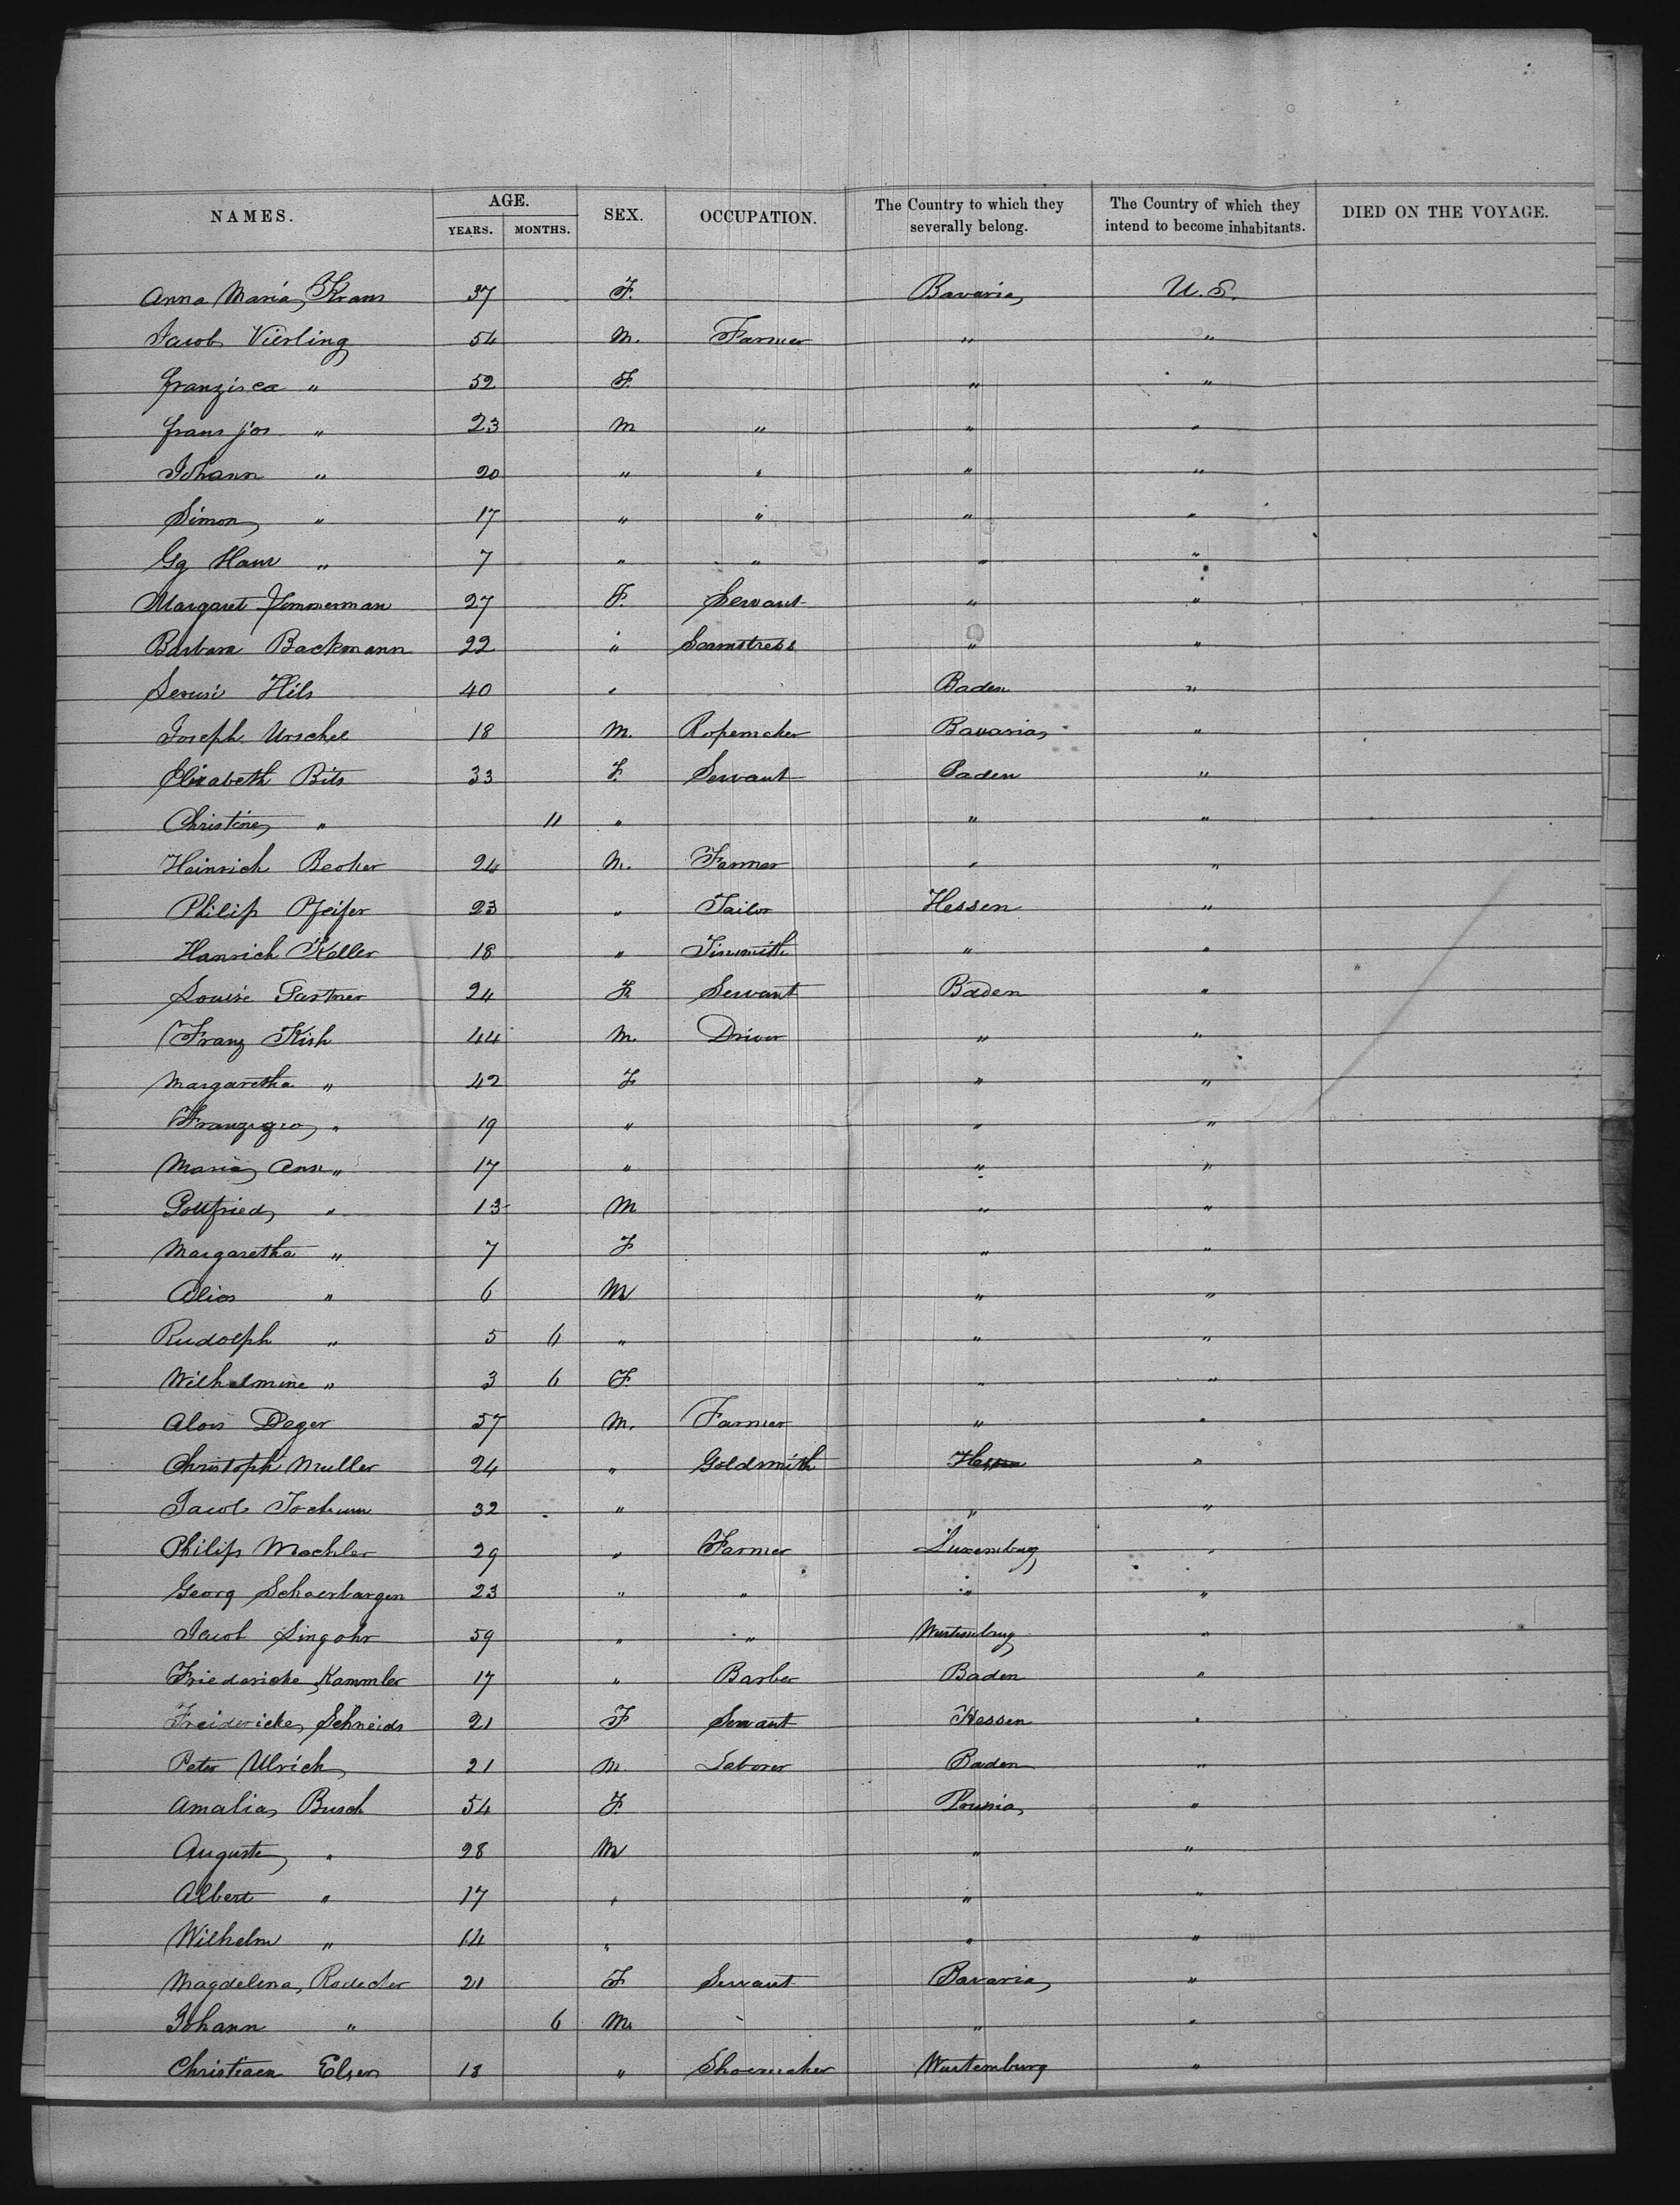 NAMES. AGE. SEX. OCCUPATION. The Country to which they severally belong. The Country of which they intend to become inhabitants. DIED ON THE VOYAGE.
YEARS. MONTHS.
Anna Maria Krans 37 F. Bavaria U.S.
Jacob Vierling 54 M. Farmer " "
Franzisca " 52 F. " "
Frans Jos " 23 M " " "
Johann " 20 " " " "
Simon " 17 " " " "
Gg Hans " 7 " " " "
Margaret Zimmerman 27 F. Servant " "
Barbara Backmann 22 " Seamstress " "
Hils 40 " Baden "
Joseph Urschel 18 M. Ropemaker Bavaria "
Elizabeth Bits 33 F. Servant Baden "
Christine " 11 " " "
Heinrich Becker 24 M. Farmer " "
Philip Pfeifer 23 " Tailor Hessen "
Hanrich Keller 18 " Tinsmith " "
Louise Gartner 24 F. Servant Baden "
Franz Kish 44 M. Driver " "
Margaretha " 42 F " "
" 19 " " "
Maria Ann " 17 " " "
Gottfried " 13 M " "
Margaretha " 7 F " "
Alios " 6 M " "
Rudolph " 5 6 " " "
Wilhelmine " 3 6 F. " "
Alois Deger 57 M. Farmer " "
Christoph Muller 24 " Goldsmith Hessen "
Jacob Jochum 32 " " "
Philip Mochler 29 " Farmer Luxemburg "
Georg Schaerbargen 23 " " " "
Jacob Singohr 59 " " Wurtemburg "
Friederiche Kammler 17 " Barber Baden "
Freidericke Schneids 21 F Servant Hessen "
Peter Ulrich 21 M Laborer Baden "
Amalia Busch 54 F. Prussia "
Auguste " 28 M " "
Albert " 17 " " "
Wilhelm " 14 " " "
Magdelena 21 F Servant Bavaria "
Johann " 6 M. " "
Christiaen Elser 18 " Shoemaker Wurtemburg "